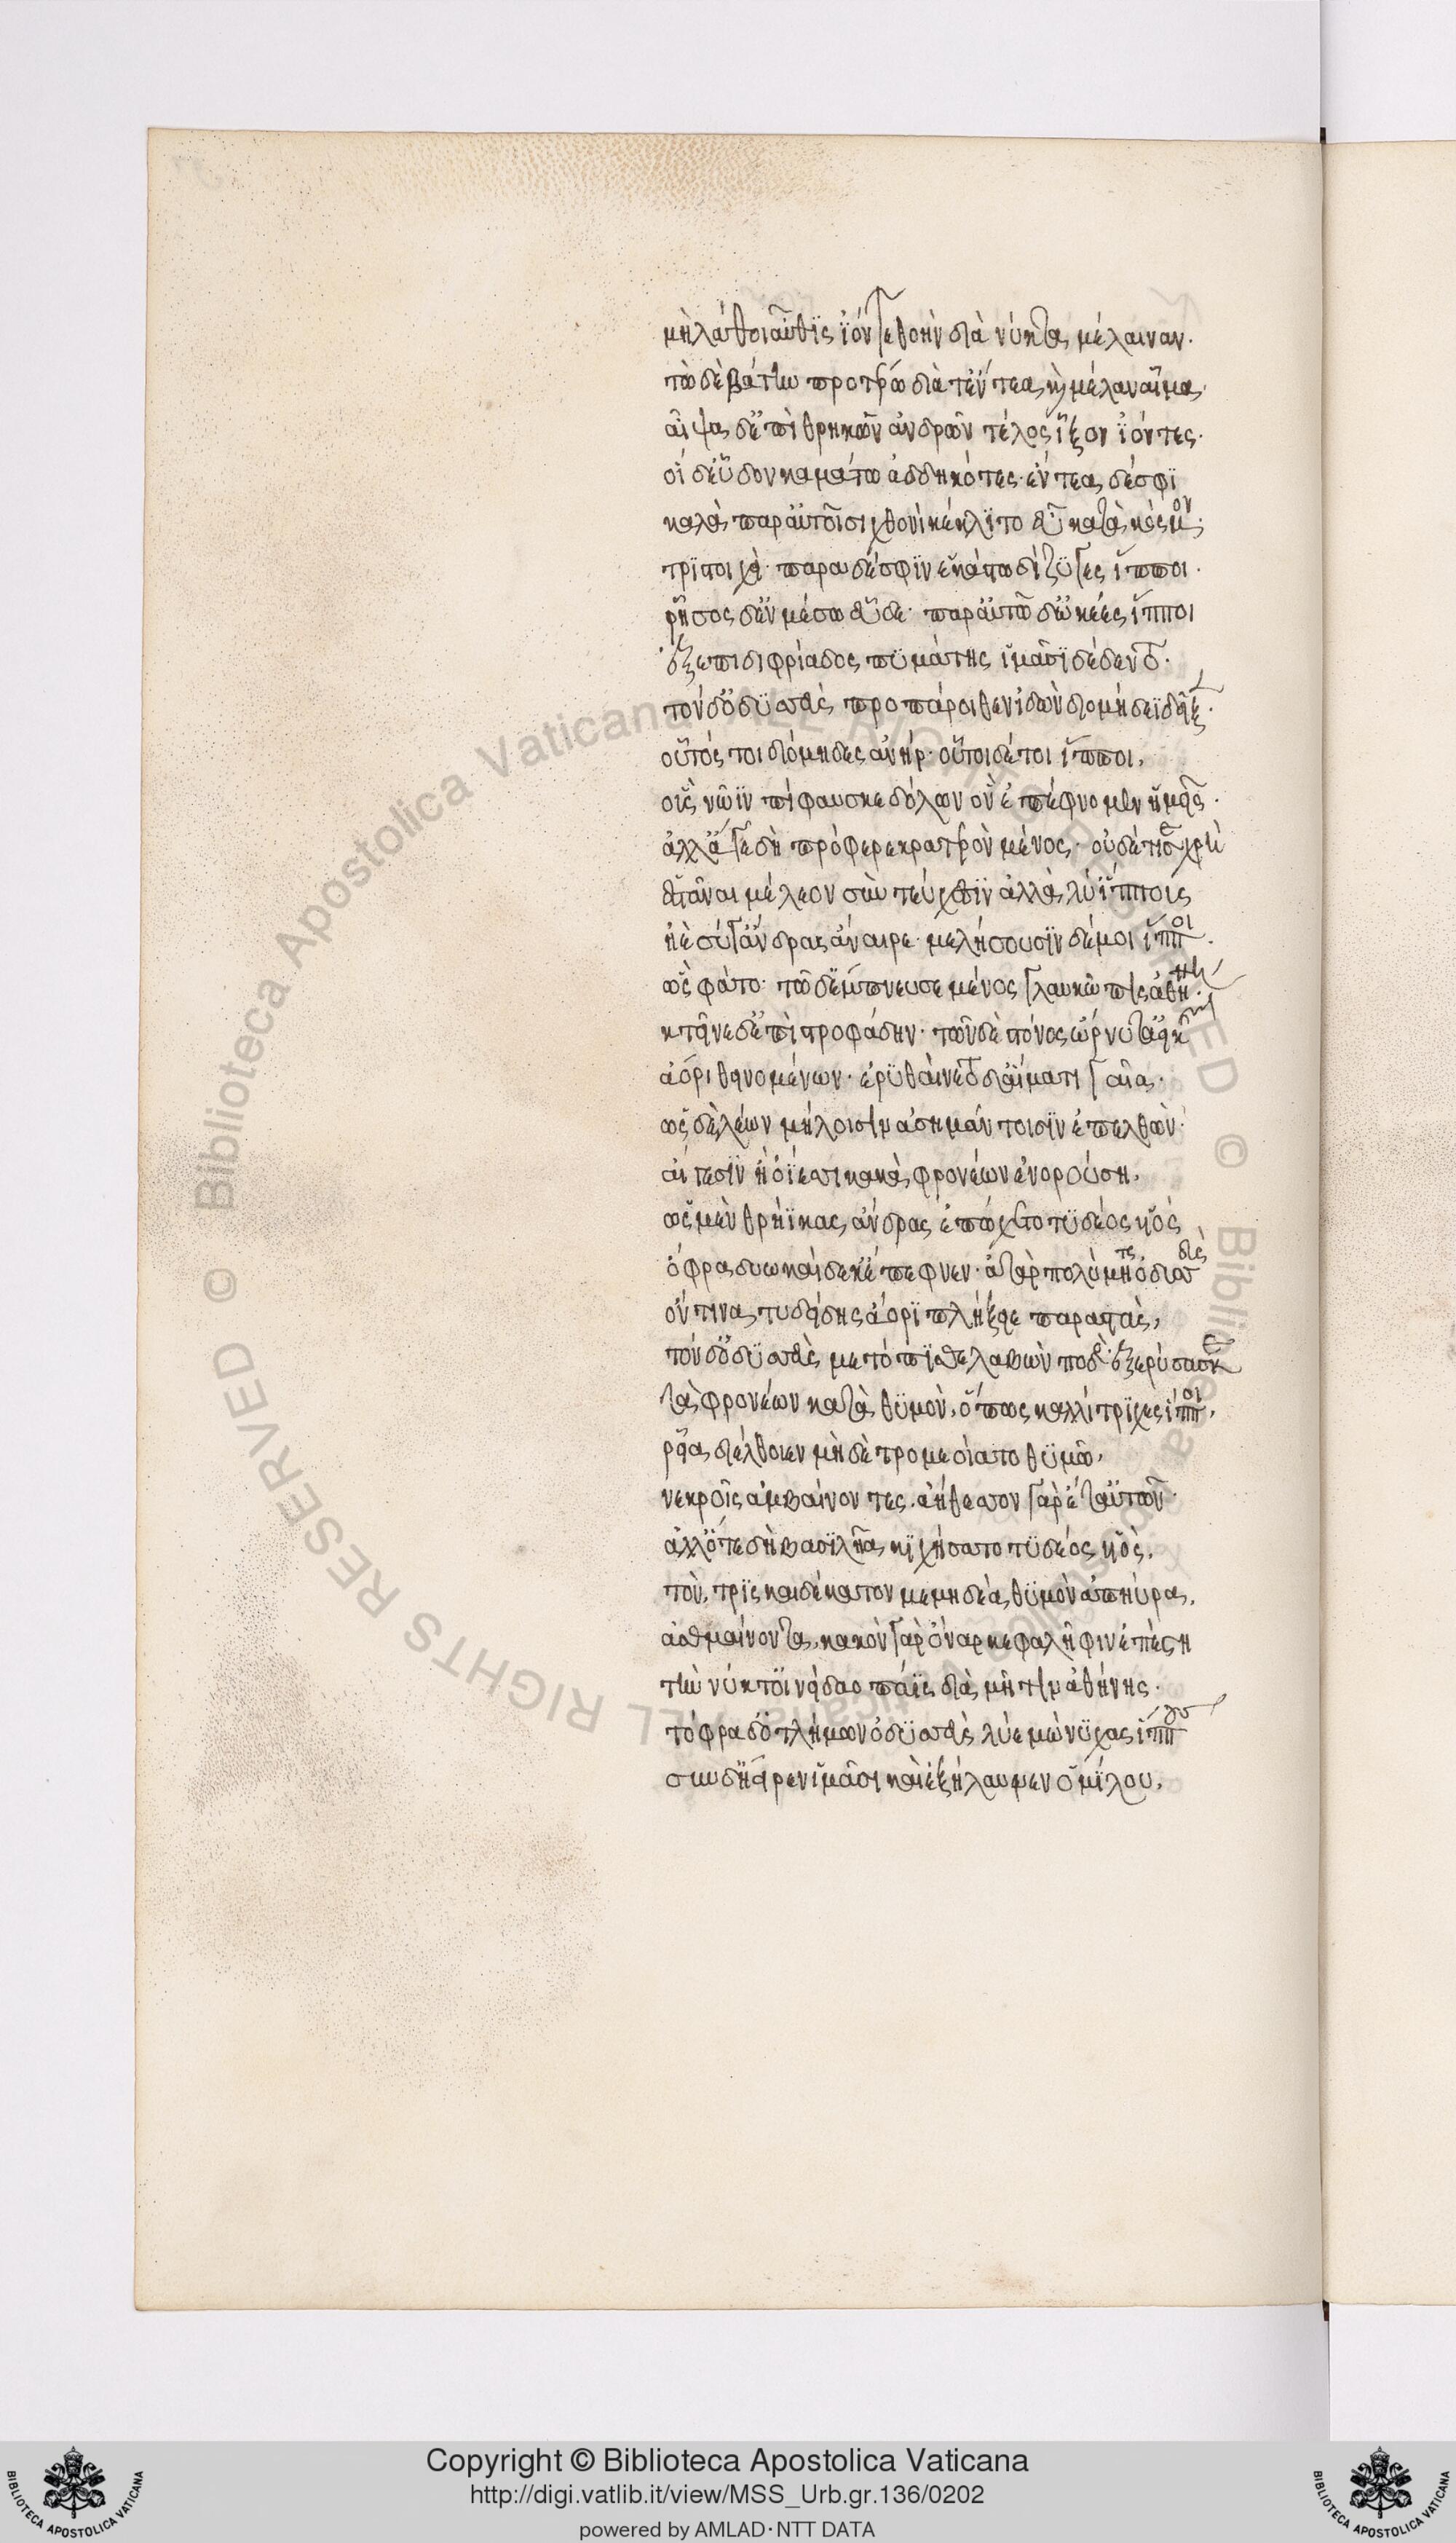 μὴ λάθοι αὖθϊς ϊόντε θοὴν διὰ νύκτα μέλαιναν.
τὼ δὲ βάτην προτέρω διά τ' ἔντεα καὶ μέλαν αἷμα.
αἶψα δ' ἐπὶ θρηκῶν ἀνδρῶν τέλος ἷξον ϊόντες.
οἱ δ' εὗδον καμάτω ἀδδηκότες. ἔντεα δέ σφϊ
καλὰ παρ' αὐτοῖσι χθονὶ κέκλϊτο εὖ κατὰ κόσμον;
τρϊστοιχὶ. παρὰ δέ σφϊν ἑκάστω δίζϋγες ἵπποι.
ῥῆσος δ' ἐν μέσω εὗδε. παρ' αὐτῶ δ' ὠκέες ἵπποι
ἐξ ἐπιδιφριάδος πϋμάτης ἱμᾶσϊ δέδεντο.
τὸν δ' ὀδϋσεὺς προπάροιθεν ἰδὼν διομήδεϊ δεῖξε.
οὗτός τοι διόμηδες ἀνήρ. οὗτοι δέ τοι ἵπποι.
οὓς νῶϊν πίφαυσκε δόλων ὃν ἐπέφνομεν ἡμεῖς.
ἀλλ' ἄγε δὴ πρόφερε κρατερὸν μένος. οὐδέ τι σε χρὴ
ἑστάναι μέλεον σὺν τεύχεσϊν ἀλλὰ λύ' ἵππους
ἠὲ σύ γ' ἄνδρας ἄναιρε. μελήσουσϊν δ' ἐμοὶ ἵπποι.
ὣς φάτο. τῶ δ' ἔμπνευσε μένος γλαυκῶπις ἀθήνη.
κτεῖνε δ' ἐπιτροφάδην. τῶν δὲ στόνος ὤρνυτ' ἀεικὴς
ἄορι θεινομένων. ἐρϋθαίνετο δ' αἵματι γαῖα.
ὡς δὲ λέων μήλοισιν ἀσημάντοισϊν ἐπελθὼν.
αἴγεσϊν ἢ ὀΐεσσι κακὰ φρονέων ἐνορούση.
ὣς μὲν θρήϊκας ἄνδρας ἐπώχετο τϋδέος υἱὸς
ὄφρα δυωκαίδεκ' ἔπεφνεν. ἀτὰρ πολύμητις ὀδυσσεὺς
ὅν τινα τυδείδης ἄορϊ πλήξειε παραστὰς,
τὸν δ' ὀδϋσεὺς μετόπϊσθε λαβὼν ποδὸς ἐξερύσασκε
τὰ φρονέων κατὰ θϋμὸν, ὅπως καλλίτρϊχες ἵπποι,
ῥεῖα διέλθοιεν μὴ δὲ τρομεοίατο θϋμῶ,
νεκροῖς ἀμβαίνοντες. ἀήθεσσον γὰρ ἔτ' αὐτῶν.
ἀλλ' ὅτε δὴ βασϊλῆα κϊχήσατο τϋδέος υἱὸς,
τὸν, τρϊςκαιδέκατον μεμηδέα θϋμὸν ἀπηύρα,
ἀσθμαίνοντα, κακὸν γὰρ ὄναρ κεφαλῆφιν ἐπέστη
τὴν νύκτ' οἰνείδαο πάϊς διὰ μῆτιν ἀθήνης.
τόφρα δ' ὁ τλήμων ὀδϋσεὺς λύε μώνϋχας ἵππους
σὺν δ' ἤειρεν ἱμᾶσι καὶ ἐξήλαυνεν ὁμίλου,
Copyright © Biblioteca Apostolica Vaticana
http://digi.vatlib.it/view/MSS_Urb.gr.136/0202
powered by AMLAD·NTT DATA